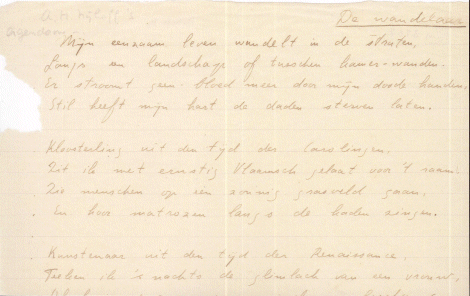 A. M. 
agendum
De wandelaar
Mijn eenzaam leven wandelt in de straten,
Langs een landschap of tusschen kamer-wanden.
Er stroomt geen bloed meer door mijn doode handen,
Stil heeft mijn hart de daden sterven laten.
Kloosterling uit den tijd der Carolingen,
Zit ik met ernstig Vlaamsch gelaat voor 't raam:
Zie menschen op een zonnig grasveld gaan,
En hoor matrozen langs de kaden zingen.
Kunstenaar uit den tijd der Renaissance,
Teeken ik 's nachts de glimlach van een vrouw,